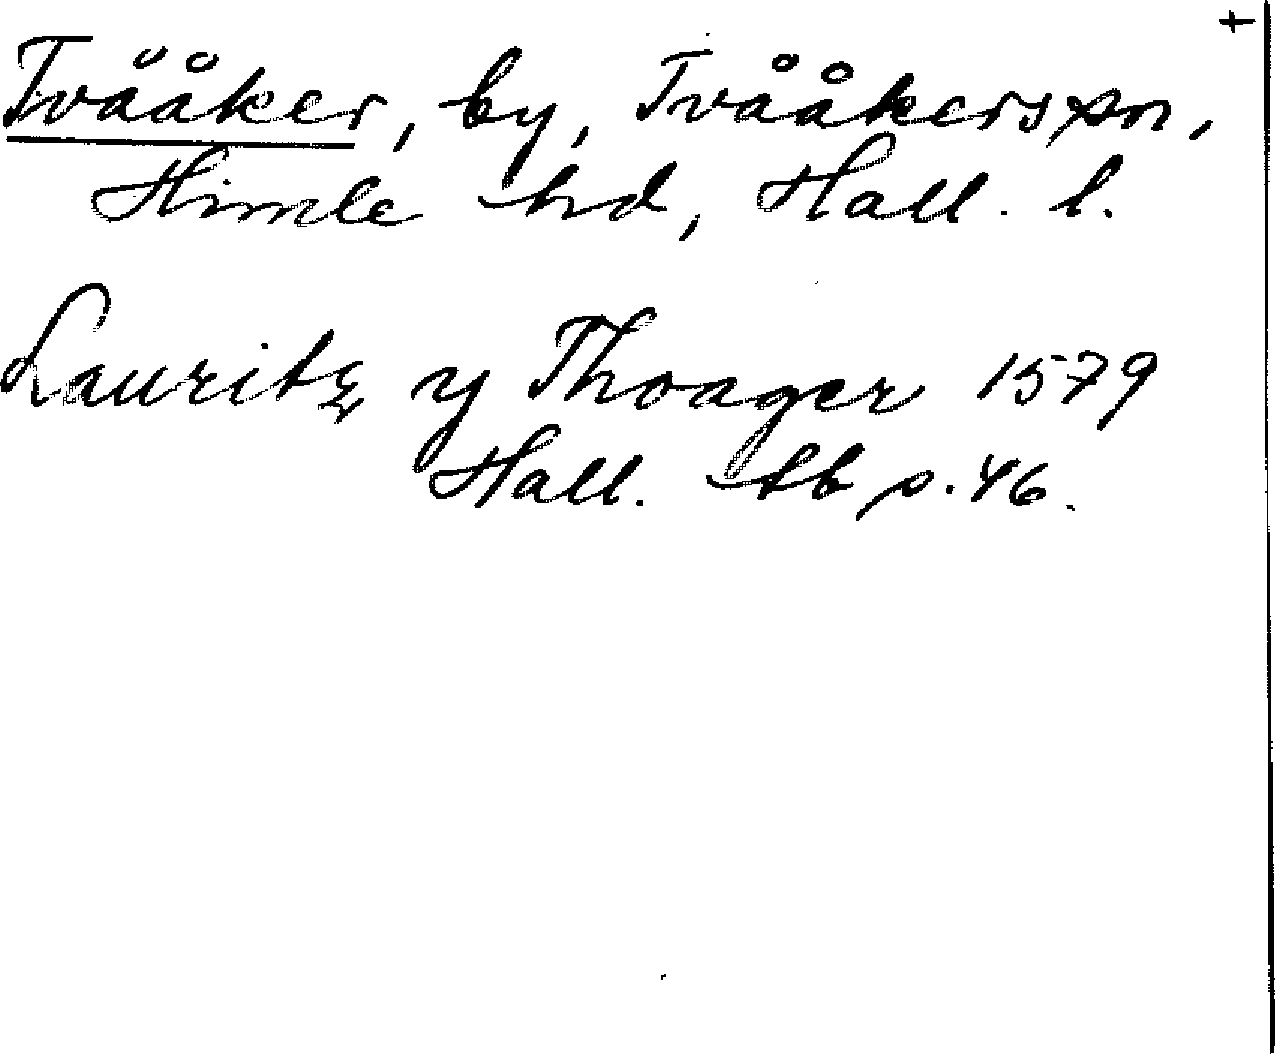 +
Tvååker, by, Tvååkers sn,
Himle hd, Hall. l.
Lauritz y Thoager 1579
Hall. tb s. 46.